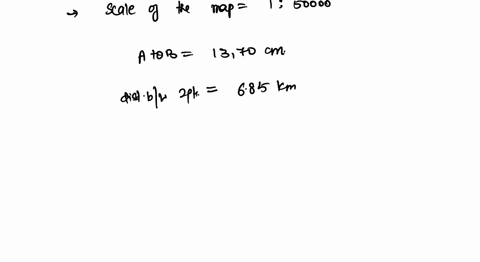 → Scale of the map = 1 : 50000
A to B = 13,70 cm
dist. b/w 2pt. = 6.85 km